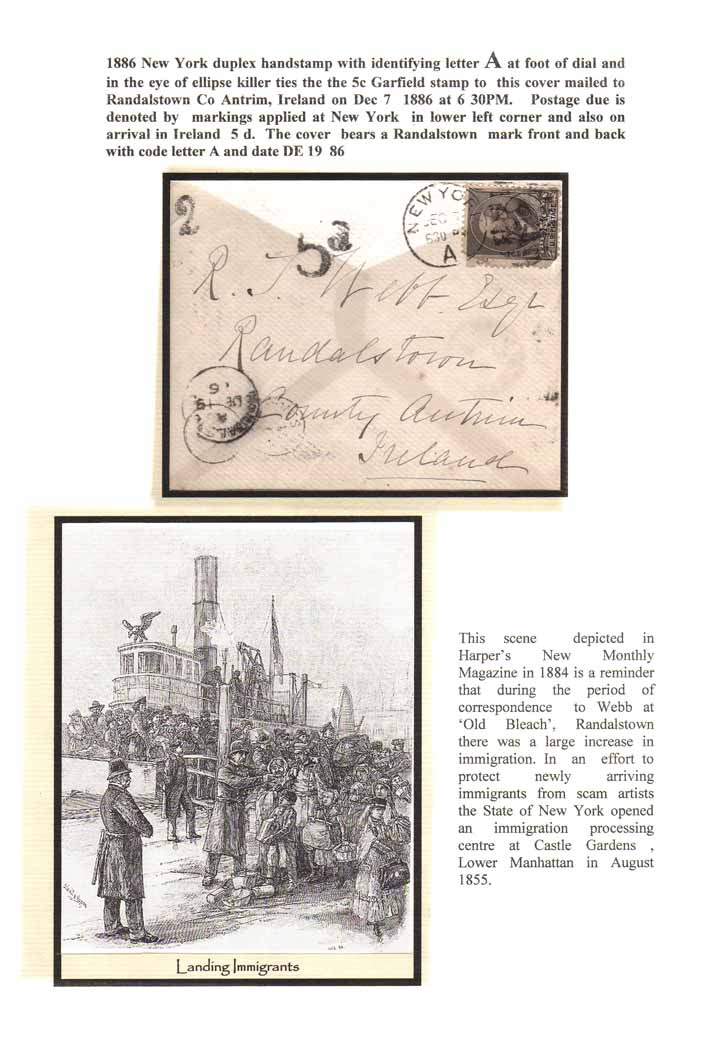 1886 New York duplex handstamp with identifying letter A at foot of dial and
in the eye of ellipse killer ties the the 5c Garfield stamp to this cover mailed to
Randalstown Co Antrim, Ireland on Dec 7 1886 at 6 30PM. Postage due is
denoted by markings applied at New York in lower left corner and also on
arrival in Ireland 5 d. The cover bears a Randalstown mark front and back
with code letter A and date DE 19 86
2
5d
NEW YO
DEC 7
630 P
A
R. J. Webb Esqr
Randalstown
County Antrim
Ireland
DE 19
A
This scene depicted in
Harper's New Monthly
Magazine in 1884 is a reminder
that during the period of
correspondence to Webb at
‘Old Bleach’, Randalstown
there was a large increase in
immigration. In an effort to
protect newly arriving
immigrants from scam artists
the State of New York opened
an immigration processing
centre at Castle Gardens ,
Lower Manhattan in August
1855.
Landing Immigrants